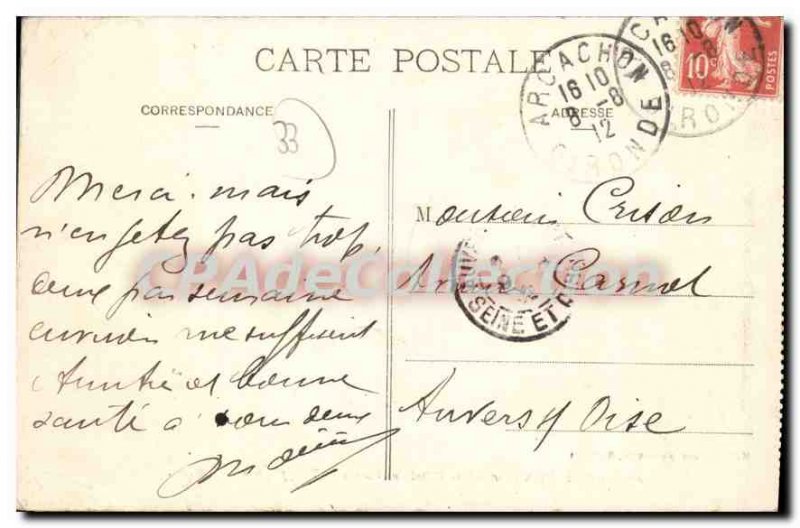 CARTE POSTALE
CORRESPONDANCE
ADRESSE
ARCACHON
16 10
8 -8
12
GIRONDE
16 10
GIRONDE
10c
POSTES
33
Merci. mais
n'en jetez pas trop,
deux par semaine
environ me suffisent
Amitié et bonne
santé à vous deux
Monsieur
Carnot
Auvers s/ Oise
SEINE ET O
CPAdeCollection